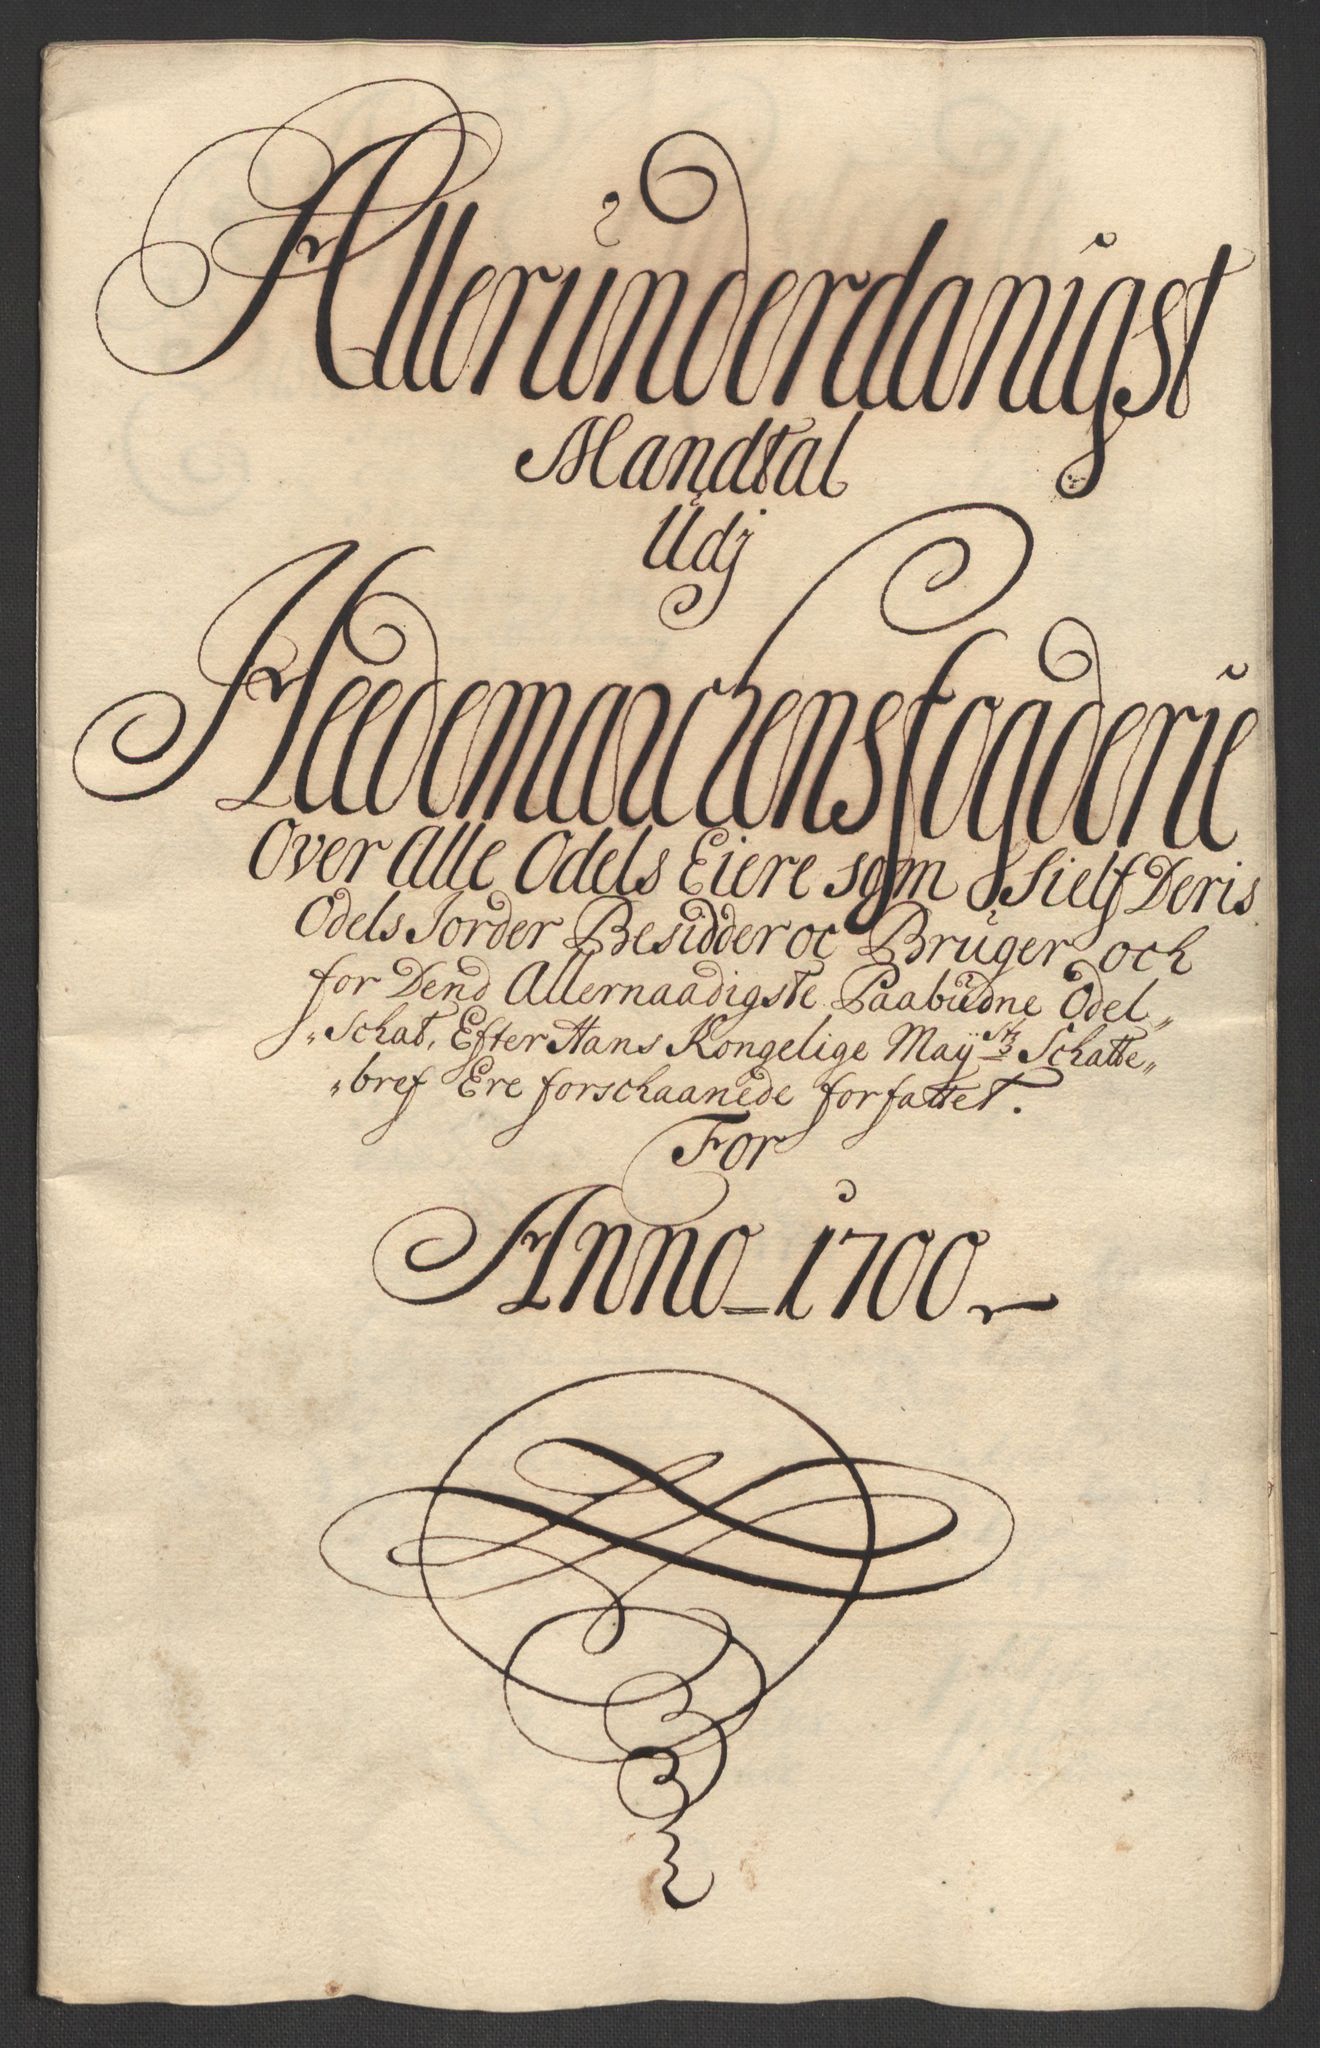 Allerúnderdanigst
Mandtal
Udj
Heedemarchens fogderie
Over Alle Odels Eiere som Sielf Deris
Odels Jorder Besidder oc Brúger och
for Dend Allernaadigste Paabúdne Odel„
„Schat, Efter Hans Kongelige Maÿsts Schatte„
„bref Ere forschaanede forfattet.
For
Anno 1700